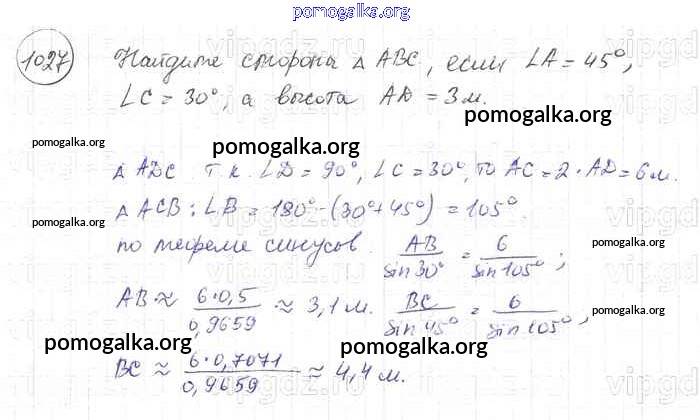 pomogalka.org
1027 Найдите стороны △ ABC, если ∠A = 45°,
∠C = 30°, а высота AD = 3 м.
pomogalka.org
pomogalka.org pomogalka.org
△ ADC т.к. ∠D = 90°, ∠C = 30°, то AC = 2 · AD = 6 м.
pomogalka.org
△ ACB: ∠B = 180° - (30° + 45°) = 105°.
pomogalka.org pomogalka.org
по теореме синусов. AB/sin 30° = 6/sin 105°;
pomogalka.org
AB ≈ 6·0,5/0,9659 ≈ 3,1 м. BC/sin 45° = 6/sin 105°,
pomogalka.org
pomogalka.org pomogalka.org
BC ≈ 6·0,7071/0,9659 ≈ 4,4 м.
pomogalka.org